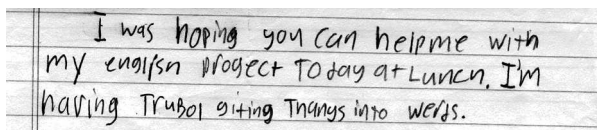 I was hoping you can helpme with
my englisn progect Today at Luncn. I'm
having TruBol giting Thangs into werds.